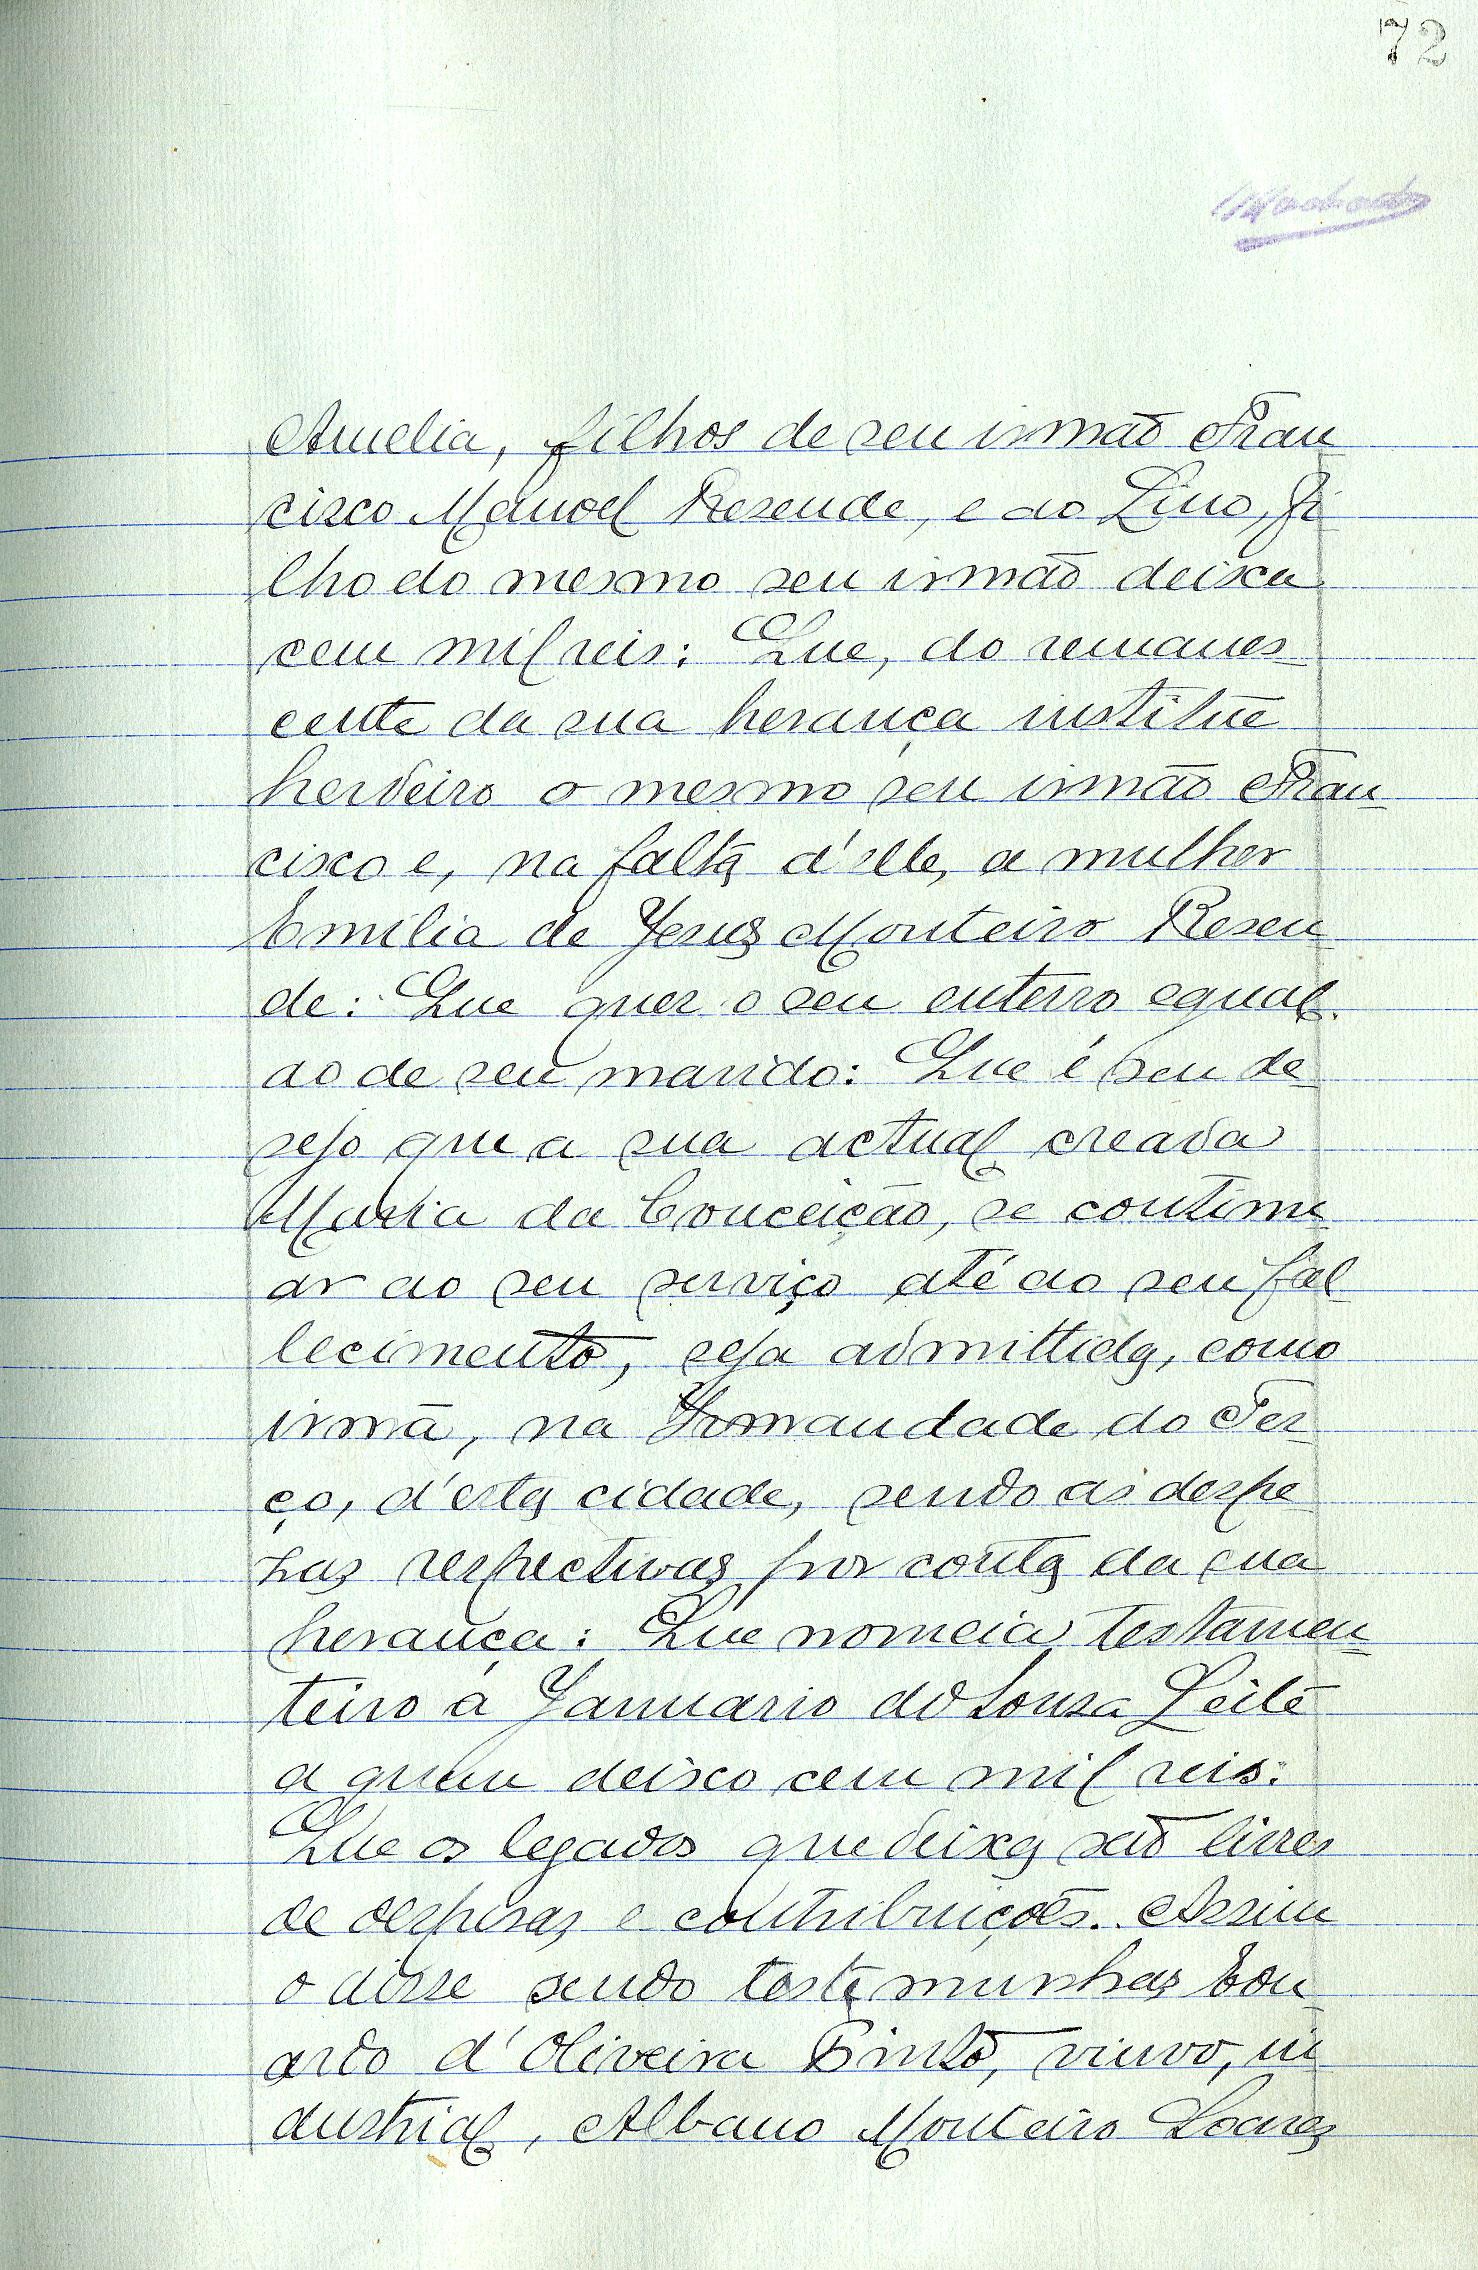 72
Machado
Amelia, filhos de seu irmão Fran
cisco Manoel Resende, e ao Lino, fi
lho do mesmo seu irmão deixa
cem mil reis: Que, do remanes-
cente da sua herança institue
herdeiro o mesmo seu irmão Fran-
cisco e, na falta d'elle, a mulher
Emilia de Jesus Monteiro Resen-
de: Que quer o seu enterro egual
ao de seu marido: Que é seu de-
sejo que a sua actual creada
Maria da Conceição, se continu-
ar ao seu serviço até ao seu fal-
lecimento, seja admittida, como
irmã, na Irmandade do Ter-
ço, d'esta cidade, sendo as despe-
zas respectivas por conta da sua
herança: Que nomeia testamen-
teiro a Januario de Sousa Leite
a quem deixo cem mil reis:
Que os legados que deixa são livres
de despesas e contribuições. Assim
o disse sendo testemunhas Edu-
ardo d'Oliveira Pinto, viuvo, in
dustrial, Albano Monteiro Soares